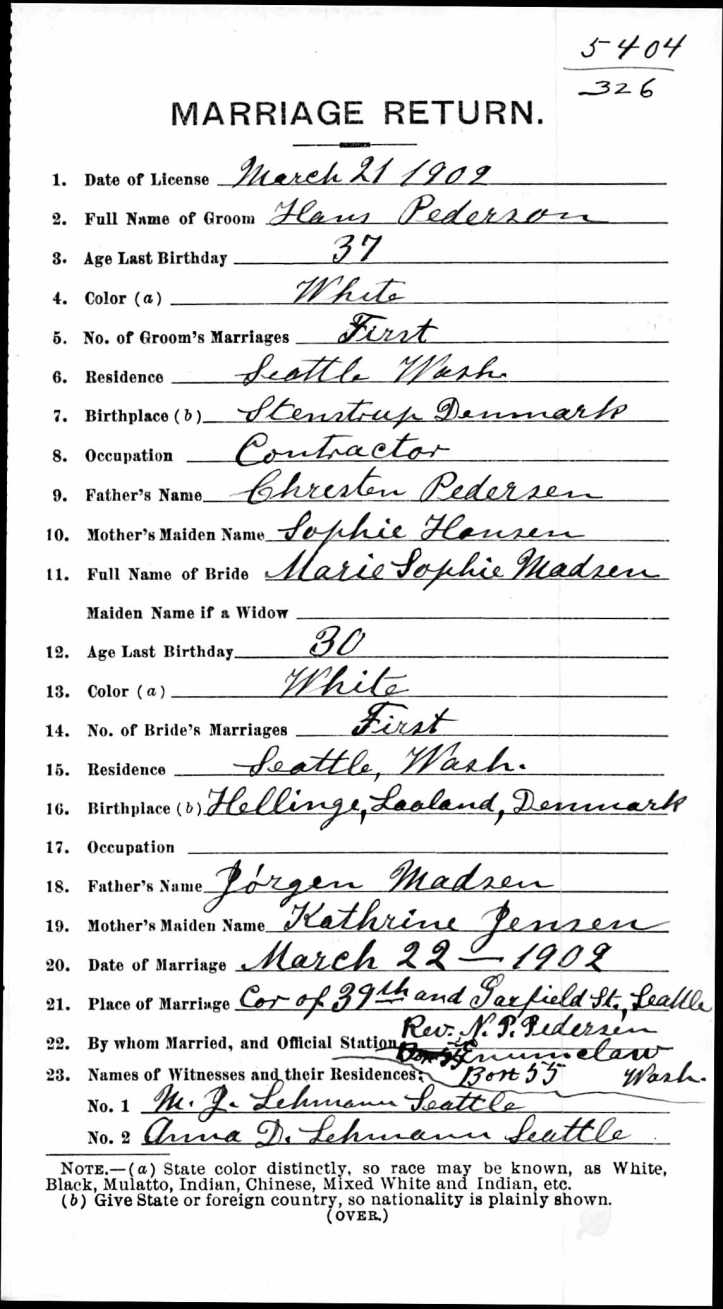 5404
326
MARRIAGE RETURN.
1. Date of License March 21 1902
2. Full Name of Groom Hans Pederson
3. Age Last Birthday 37
4. Color (a) White
5. No. of Groom's Marriages First
6. Residence Seattle Wash.
7. Birthplace (b) Stenstrup Denmark
8. Occupation Contractor
9. Father's Name Chresten Pedersen
10. Mother's Maiden Name Sophie Hansen
11. Full Name of Bride Marie Sophie Madsen
Maiden Name if a Widow
12. Age Last Birthday 30
13. Color (a) White
14. No. of Bride's Marriages First
15. Residence Seattle, Wash.
16. Birthplace (b) Hellinge, Laaland, Denmark
17. Occupation
18. Father's Name Jórgen Madsen
19. Mother's Maiden Name Kathrine Jensen
20. Date of Marriage March 22 — 1902
21. Place of Marriage Cor of 39th and Garfield St., Seattle
Rev. N. P. Pedersen
22. By whom Married, and Official Station Enumclaw
23. Names of Witnesses and their Residences: Box 55 Wash.
No. 1 M. J. Lehmann Seattle
No. 2 Anna D. Lehmann Seattle
NOTE.—(a) State color distinctly, so race may be known, as White,
Black, Mulatto, Indian, Chinese, Mixed White and Indian, etc.
(b) Give State or foreign country, so nationality is plainly shown.
(OVER.)